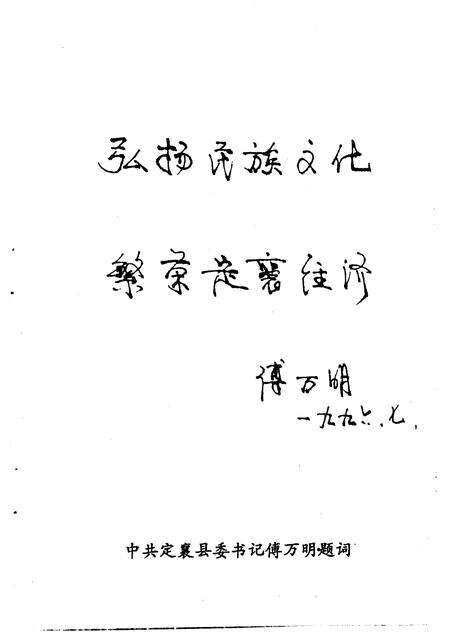 弘扬民族文化
繁荣定襄经济
傅万明
一九九六.七.
中共定襄县委书记傅万明题词